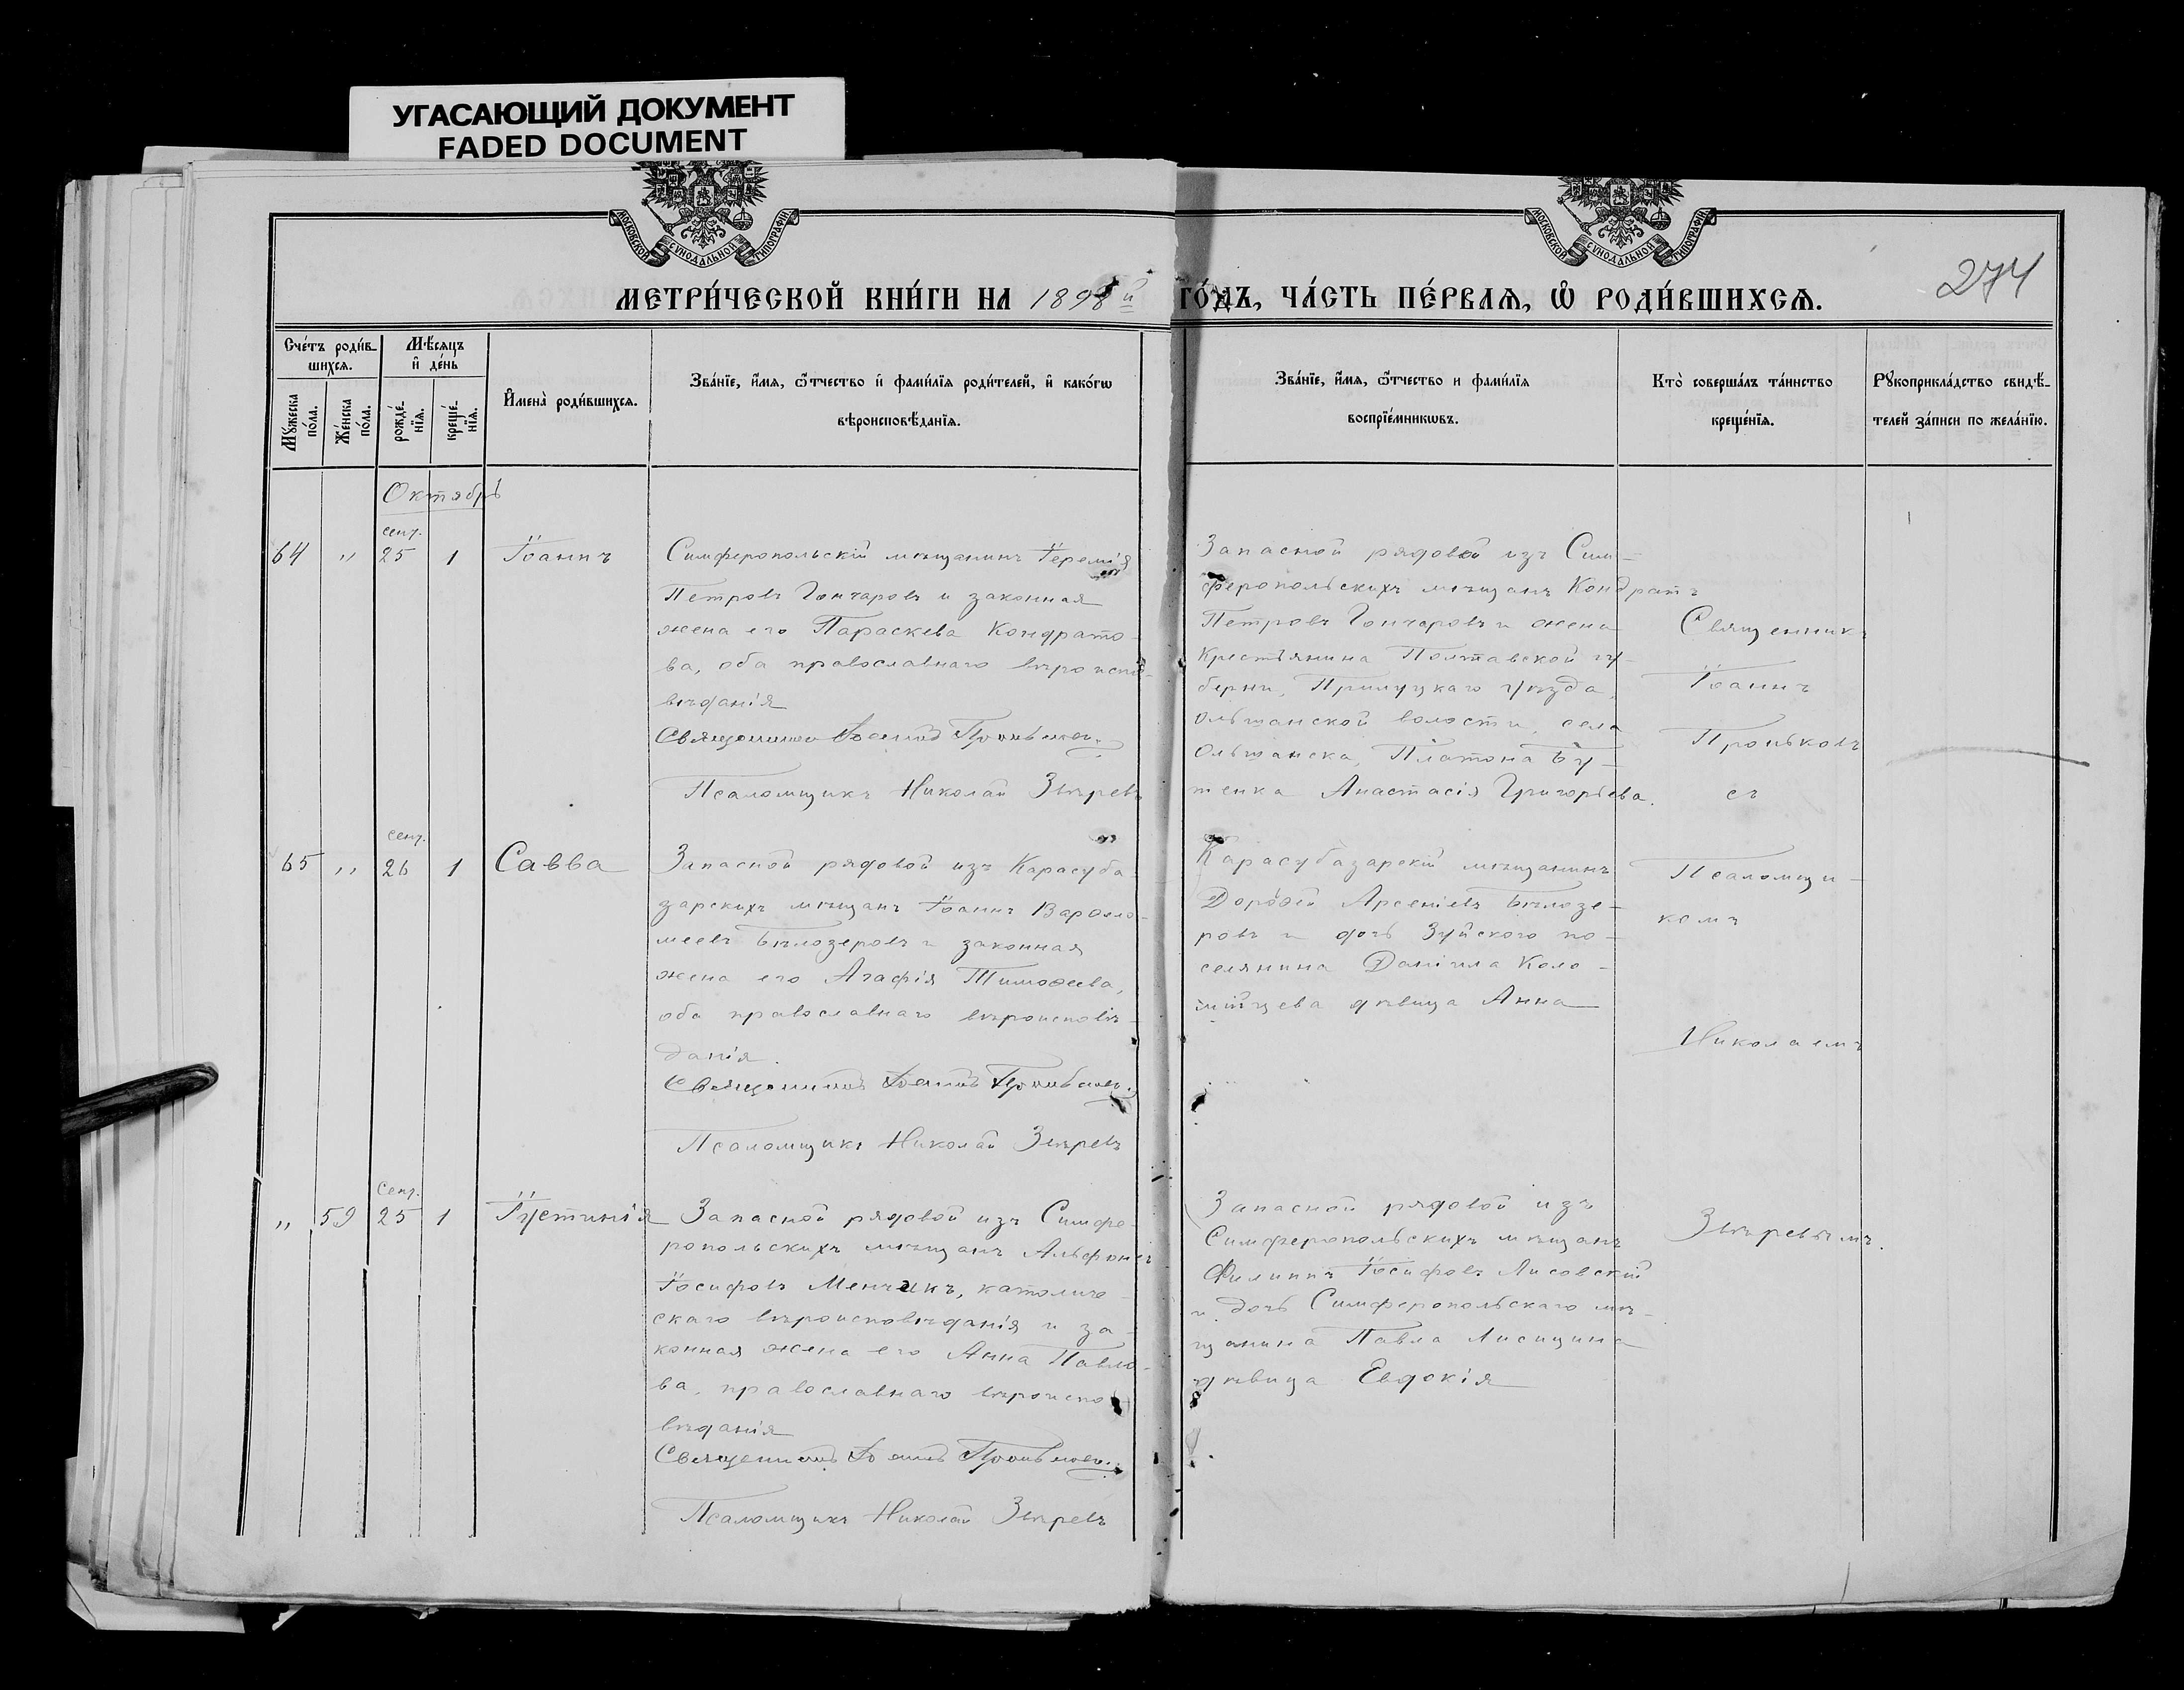 УГАСАЮЩИЙ ДОКУМЕНТ
FADED DOCUMENT
МОСКОВСКОЙ СУНОДАЛЬНОЙ ТИПОГРАФІИ
МОСКОВСКОЙ СУНОДАЛЬНОЙ ТИПОГРАФІИ
МЕТРИ́ЧЕСКОЙ КНИ́ГИ НА 1898й ГО́ДЪ, ЧА́СТЬ ПЕ́РВАЯ, Ѡ РОДИ́ВШИХСЯ.
274
Сче́тъ роди́в-
шихся.
Му́жеска
по́ла.
Же́нска
по́ла.
Мѣ́сяцъ
и де́нь
рожде́-
нїя.
креще́-
нїя.
Имена̀ роди́вшихся.
Зва́нїе, и́мя, ѻ́тчество и фами́лїя роди́телей, и како́гѡ
вѣроисповѣ́данїя.
Зва́нїе, и́мя, ѻ́тчество и фами́лїя
воспрїе́мникѡвъ.
Кто̀ соверша́лъ та́инство
креще́нїя.
Рꙋкоприкла́дство свидѣ́-
телей за́писи по жела́нїю.
Октябрь
64 " сент. 25 1 Іоаннъ
Симферопольскій мѣщанинъ Іеремія
Петровъ Гончаровъ и законная
жена его Параскева Кондрато-
ва, оба православнаго вѣроиспо-
вѣданія
Священникъ Іоаннъ Проньковъ.
Псаломщикъ Николай Звѣревъ
Запасной рядовой изъ Сим-
феропольскихъ мѣщанъ Кондратъ
Петровъ Гончаровъ и жена
крестьянина Полтавской гу-
берни, Прилуцкаго уѣзда,
Ольшанской волости, села
Ольшанска, Платона Бу-
тенка Анастасія Григорьева.
Священникъ
Іоаннъ
Проньковъ
съ
65 " сент. 26 1 Савва
Запасной рядовой изъ Карасуба-
зарскихъ мѣщанъ Іоаннъ Варѳоло-
меевъ Бѣлозеровъ и законная
жена его Агафія Тимоѳеева,
оба православнаго вѣроисповѣ-
данія.
Священникъ Іоаннъ Проньковъ.
Псаломщикъ Николай Звѣревъ
Карасубазарскій мѣщанинъ
Дороѳей Арсеніевъ Бѣлозе-
ровъ и дочь Зуйского по-
селянина Даніила Коло-
мійцева дѣвица Анна
Псаломщи-
комъ
Николаемъ
" 59 Сент. 25 1 Іустинія
Запасной рядовой изъ Симфе-
ропольскихъ мѣщанъ Альфонсъ
Іосифовъ Менчикъ, католиче-
скаго вѣроисповѣданія и за-
конная жена его Анна Павло-
ва, православнаго вѣроиспо-
вѣданія
Священникъ Іоаннъ Проньковъ.
Псаломщикъ Николай Звѣревъ
Запасной рядовой изъ
Симферопольскихъ мѣщанъ
Филиппъ Іосифовъ Лисовскій
и дочь Симферопольскаго мѣ-
щанина Павла Лисицина
дѣвица Евдокія
Звѣревымъ.